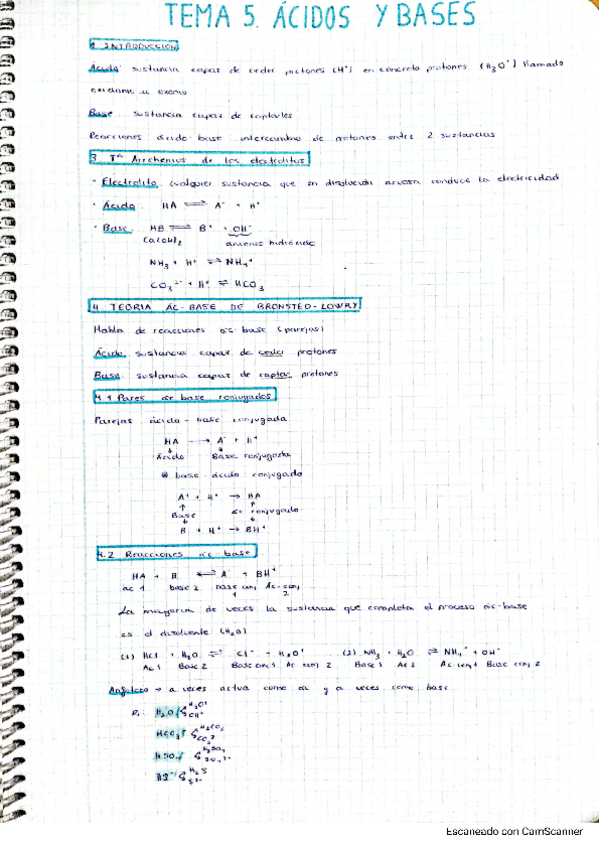 TEMA 5. ÁCIDOS Y BASES
1 INTRODUCCIÓN
Ácido: sustancia capaz de ceder protones (H⁺) en concreto protones (H₃O⁺) llamado
oxidanio u oxonio
Base: sustancia capaz de captarlos
Reacciones ácido-base: intercambio de protones entre 2 sustancias
3. Tª Arrehenius de los electrolitos
· Electrolito: cualquier sustancia que en disolución acuosa conduce la electricidad
· Ácido: HA ⇌ A⁻ + H⁺
· Base: HB ⇌ B⁺ + OH⁻
Ca(OH)₂ aniones hidróxido
NH₃ + H⁺ ⇌ NH₄⁺
CO₃²⁻ + H⁺ ⇌ HCO₃
4. TEORIA ÁC-BASE DE BRONSTED-LOWRY
Habla de reacciones ác-base (parejas)
Ácido: sustancia capaz de ceder protones
Base: sustancia capaz de captar protones
4.1 Pares ác base conjugados
Parejas ácido-base conjugada
HA → A⁻ + H⁺
Ácido Base conjugada
base-ácido conjugado
A⁻ + H⁺ → HA
Base ác conjugado
B + H⁺ → BH⁺
4.2 Reacciones ác-base
HA + B ⇌ A⁻ + BH⁺
ac 1 base 2 base conj 1 Ac-conj 2
La mayoria de veces la sustancia que completa el proceso ác-base
es el disolvente (H₂O)
(1) HCl + H₂O ⇌ Cl⁻ + H₃O⁺ (2) NH₃ + H₂O ⇌ NH₄⁺ + OH⁻
Ac 1 Base 2 Base conj 1 Ac conj 2 Base 1 Ac 2 Ac conj 1 Base conj 2
Anfótero → a veces actua como ác y a veces como base
H₂O H₃O⁺ OH⁻
HCO₃⁻ H₂CO₃ CO₃²⁻
HSO₄⁻ H₂SO₄ SO₄²⁻
HS⁻ H₂S S²⁻
Escaneado con CamScanner